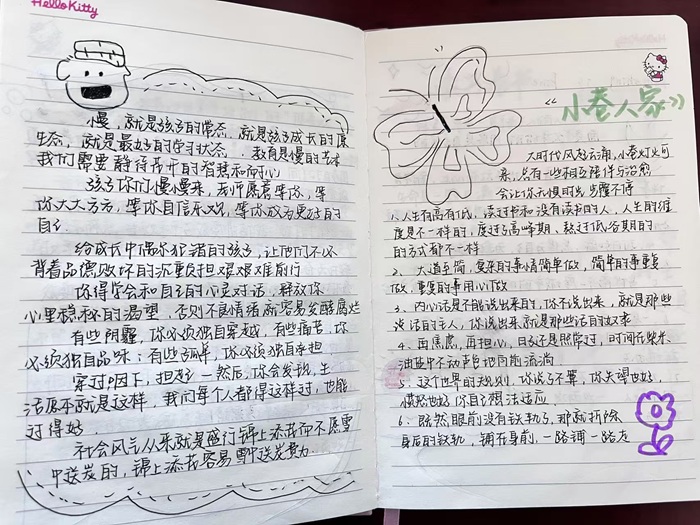 HelloKitty
慢，就是孩子的常态，就是孩子成长的原
生态，就是最好的学习状态，教育是慢的艺术
我们需要静待花开的智慧和耐心
孩子你们慢慢来，老师愿意等你，等
你大大方方，等你自信乐观，等你成为更好的
自己
给成长中偶尔犯错的孩子，让他们不必
背着品德败坏的沉重负担艰艰难难前行
你得学会和自己的心灵对话，释放你
心里稳秘的渴望，否则不良情绪就容易发酵腐烂
有些阴霾，你必须独自穿越，有些痛苦，你
必须独自品味；有些孤单，你必须独自承担
穿过 咽下，担起 一 然后，你会发现，生
活原本就是这样，我们每个人都得这样过，也能
过得好
社会风气从来就是盛行锦上添花而不愿雪
中送炭的，锦上添花容易雪中送炭莫为
“小巷人家”
大时代风起云涌，小巷灯火可
亲，总有一些相互陪伴与治愈
会让你无惧时光，步履不停
1、人生有高有低，读过书和没有读书的人，人生的维
度是不一样的，度过了高峰期、熬过低谷期的
的方式都不一样
2、大道至简，复杂的事情简单做，简单的事重复
做，重复的事用心做
3、内心话是不能说出来的，你不说出来，就是那些
没话的主人，你说出来就是那些话的奴隶
4、再焦虑，再担心，日子总是照常过，时间在柴米
油盐中不动声色地向前流淌
5、这个世界的规则，你说了不算，你失望也好，
愤怒也好，你自己想法适应
6、既然眼前没有铁轨了，那就拆除
身后的铁轨，铺在身前，一路铺一路走